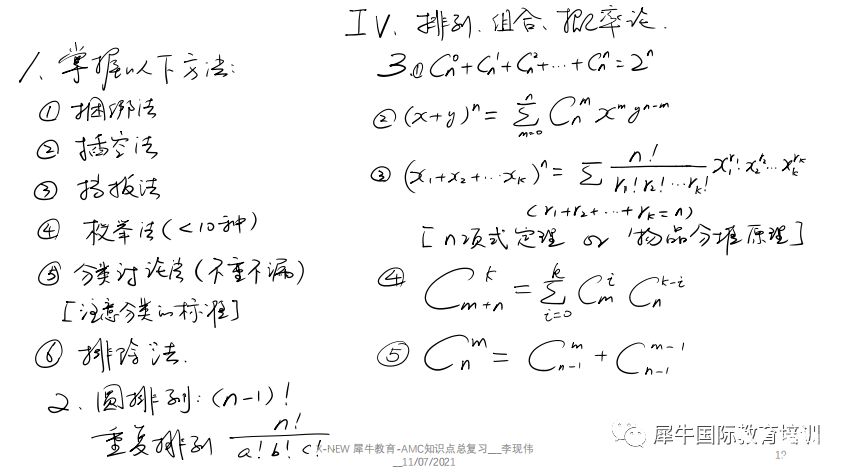 IV、排列、组合、概率论.
1、掌握以下方法:
① 捆绑法
② 插空法
③ 挡板法
④ 枚举法(<10种)
⑤ 分类讨论法(不重不漏)
[注意分类的标准]
⑥ 排除法.
2、圆排列:(n-1)!
重复排列 n!/(a!b!c!)
3.① C_n^0+C_n^1+C_n^2+…+C_n^n=2^n
② (x+y)^n = ∑_{m=0}^{n} C_n^m x^m y^{n-m}
③ (x_1+x_2+…x_k)^n = ∑ n!/(r_1!r_2!…r_k!) x_1^{r_1}·x_2^{r_2}…x_k^{r_k}
(r_1+r_2+…+r_k=n)
[n项式定理 or 物品分堆原理]
④ C_{m+n}^k = ∑_{i=0}^{k} C_m^i C_n^{k-i}
⑤ C_n^m = C_{n-1}^m + C_{n-1}^{m-1}
X-NEW 犀牛教育-AMC知识点总复习__李现伟
__11/07/2021
犀牛国际教育培训